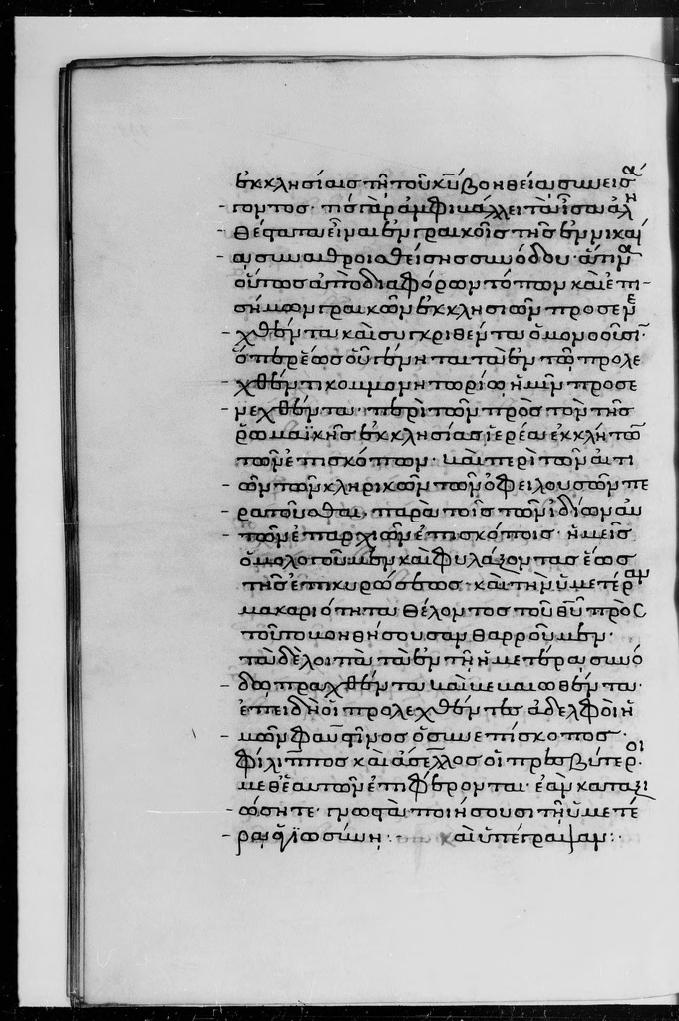 ἐκκλησίαις τῇ τοῦ κυ βοηθείᾳ συνεισά
γοντος· τίς γὰρ ἀμφιβάλλει ταῦτα ἴσα ἀλη
θέστατα εἶναι ἐν γραικοῖς τῆς ἐν νικαί
ᾳ συναθροισθείσης συνόδου· ἅτινα
οὕτως ἀπὸ διαφόρων τόπων καὶ ἐπι
σήμων γραικῶν ἐκκλησιῶν προσενε
χθέντα καὶ συγκριθέντα ὁμονοοῦσι·
ὅπερ ἕως οὗ γένηται τὰ ἐν τῷ προλε
χθέντι κομμονητωρίῳ ἡμῖν προσε
νεχθέντα· περὶ τῶν πρὸς τὸν τῆς
ῥωμαϊκῆς ἐκκλησίας ἱερέα ἐκκλήτων
τῶν ἐπισκόπων· καὶ περὶ τῶν αἰτι
ῶν τῶν κληρικῶν τῶν ὀφειλουσῶν πε
ρατοῦσθαι παρὰ τοῖς τῶν ἰδίων αὐ
τῶν ἐπαρχιῶν ἐπισκόποις· ἡμεῖς
ὁμολογοῦμεν καὶ φυλάξοντας ἕως
τῆς ἐπικυρώσεως· καὶ τὴν ὑμετέραν
μακαριότητα θέλοντος τοῦ θυ πρὸς
τοῦτο βοηθήσουσαν θαρροῦμεν·
τὰ δὲ λοιπὰ τὰ ἐν τῇ ἡμετέρᾳ συνό
δῳ πραχθέντα καὶ βεβαιωθέντα·
ἐπειδὴ οἱ προλεχθέντες ἀδελφοὶ ἡ
μῶν φαυστῖνος ὁ συνεπίσκοπος·
φίλιππος καὶ ἄσελλος οἱ πρεσβύτεροι·
μεθ᾽ ἑαυτῶν ἐπιφέρονται· ἐὰν καταξι
ώσητε· γνωστὰ ποιήσουσι τῇ ὑμετέ
ρᾳ ἁγιωσύνῃ :· καὶ ὑπέγραψαν :·